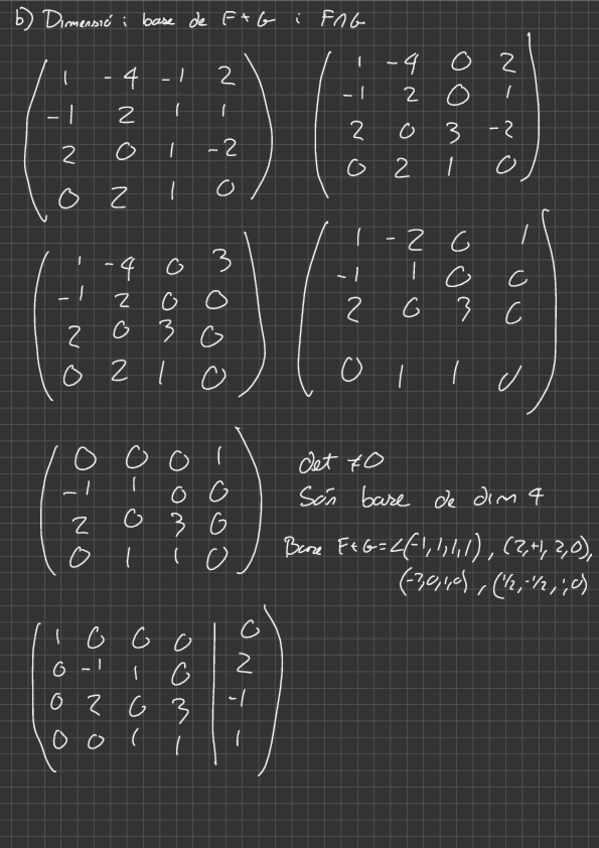 b) Dimensió i base de F+G i F∩G
1 -4 -1 2
-1 2 1 1
2 0 1 -2
0 2 1 0
1 -4 0 2
-1 2 0 1
2 0 3 -2
0 2 1 0
1 -4 0 3
-1 2 0 0
2 0 3 0
0 2 1 0
1 -2 0 1
-1 1 0 0
2 0 3 0
0 1 1 0
0 0 0 1
-1 1 0 0
2 0 3 0
0 1 1 0
det ≠0
Són base de dim 4
Base F+G=<(-1,1,1,1), (2,+1,2,0),
(-3,0,1,0), (1/2,-1/2,1,0)
1 0 0 0 | 0
0 -1 1 0 | 2
0 2 0 3 | -1
0 0 1 1 | 1